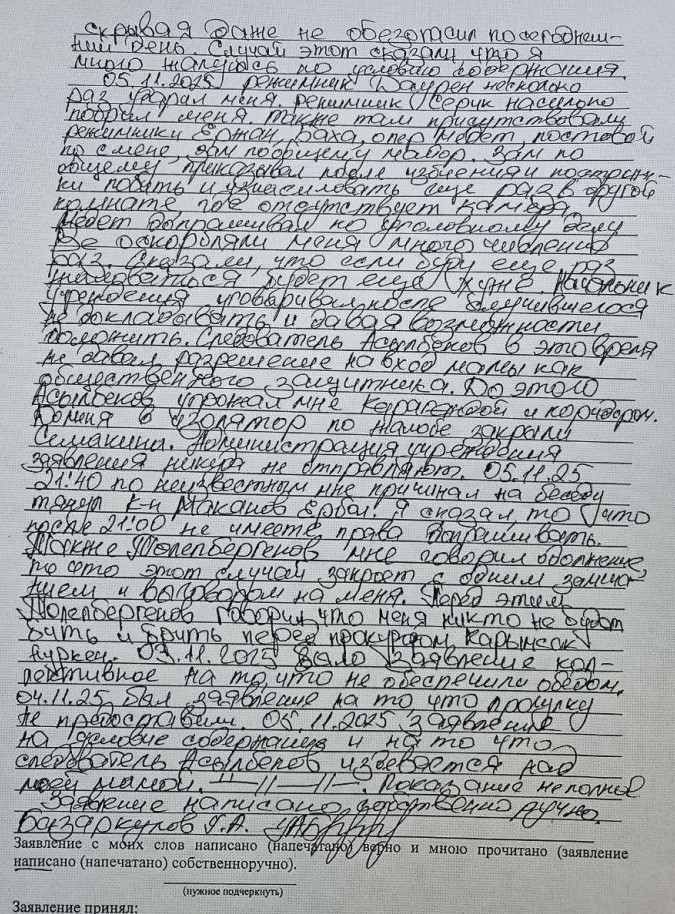 скрывая даже не обезопасил по сегоднеш-
ний день. Случай этот сказали что я
много жалуюсь по условию содержания.
05.11.2025 режимник Даурен несколько
раз ударил меня. режимник Серик насильно
побрил меня. также там присутствовали
режимники Ержан, Баха, опер Медет, постовой
по смене, зам по общему майор. Зам по
общему приказывал после избиения и подстриж-
ки побить и изнасиловать еще раз в другой
комнате где отсутствует камера.
Медет допрашивал по уголовному делу
Все оскорбляли меня много численно
раз. Сказали, что если буду еще раз
жаловаться будет еще хуже. Начальник
учреждения уговаривал после случившегося
не докладывать и давая возможности
положить. Следователь Асылбеков в это время
не давал разрешение на вход мамы как
общественного защитника. До этого
Асылбеков угрожал мне Карагандой и коридором.
в изолятор по жалобе закрыли
Семакина. Администрация учреждения
заявления никуда не отправляют. 05.11.25
21:40 по неизвестным мне причинам на беседу
к-н Маканов Ербол. Я сказал то что
после 21:00 не имеете права допрашивать.
Также Толепбергенов мне говорил
то что этот случай закроет с одним замеча-
нием и выговором на меня. Перед этим
Толепбергенов говорил, что меня никто не будет
бить и брить перед прокурором Карымсак
Нуркен. 03.11.2025 было заявление кол-
лективное на то что не обеспечили обедом.
04.11.25 был заявление на то что прогулку
не предоставили. 05.11.2025 заявление
на условие содержания и на то что
следователь Асылбеков издевается над
моей мамой. —//—//—//—. Показание неполное
Заявление написано собственно ручно.
Базаркулов Т.А.
Заявление с моих слов написано (напечатано) верно и мною прочитано (заявление
написано (напечатано) собственноручно).
(нужное подчеркнуть)
Заявление принял: